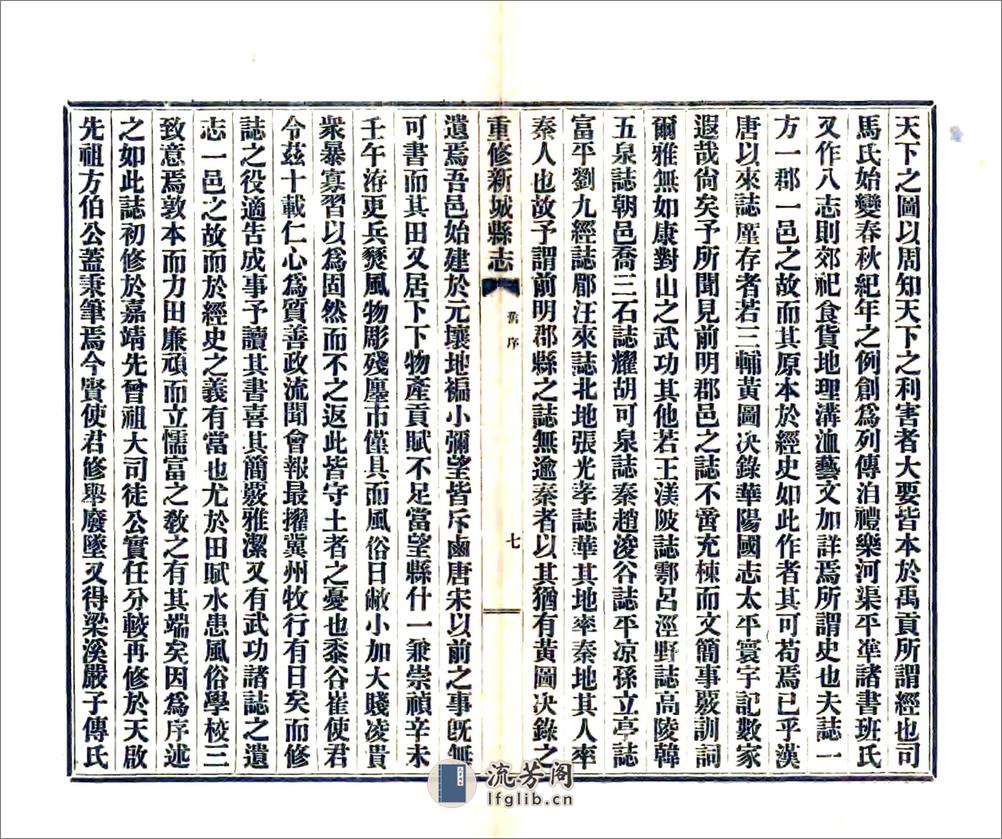 天下之圖以周知天下之利害者大要皆本於禹貢所謂經也司
馬氏始變春秋紀年之例創爲列傳洎禮樂河渠平準諸書班氏
又作八志則郊祀食貨地理溝洫藝文加詳焉所謂史也夫誌一
方一郡一邑之故而其原本於經史如此作者其可苟焉已乎漢
唐以來誌厪存者若三輔黃圖决錄華陽國志太平寰宇記數家
遐哉尙矣予所聞見前明郡邑之誌不啻充棟而文簡事覈訓詞
爾雅無如康對山之武功其他若王渼陂誌鄠呂涇野誌高陵韓
五泉誌朝邑喬三石誌耀胡可泉誌秦趙浚谷誌平凉孫立亭誌
富平劉九經誌郿汪來誌北地張光孝誌華其地率秦地其人率
秦人也故予謂前明郡縣之誌無逾秦者以其猶有黃圖决錄之
重修新城縣志
舊序
七
遺焉吾邑始建於元壤地褊小彌望皆斥鹵唐宋以前之事旣無
可書而其田又居下下物產貢賦不足當望縣什一兼崇禎辛未
壬午洊更兵燹風物彫殘廛市僅具而風俗日敝小加大賤凌貴
衆暴寡習以爲固然而不之返此皆守土者之憂也黍谷崔使君
令茲十載仁心爲質善政流聞會報最擢冀州牧行有日矣而修
誌之役適告成事予讀其書喜其簡覈雅潔又有武功諸誌之遺
志一邑之故而於經史之義有當也尤於田賦水患風俗學校三
致意焉敦本而力田廉頑而立懦富之敎之有其端矣因爲序述
之如此誌初修於嘉靖先曾祖大司徒公實任分較再修於天啟
先祖方伯公蓋秉筆焉今賢使君修舉廢墜又得梁溪嚴子傳氏
流芳閣
lfglib.cn